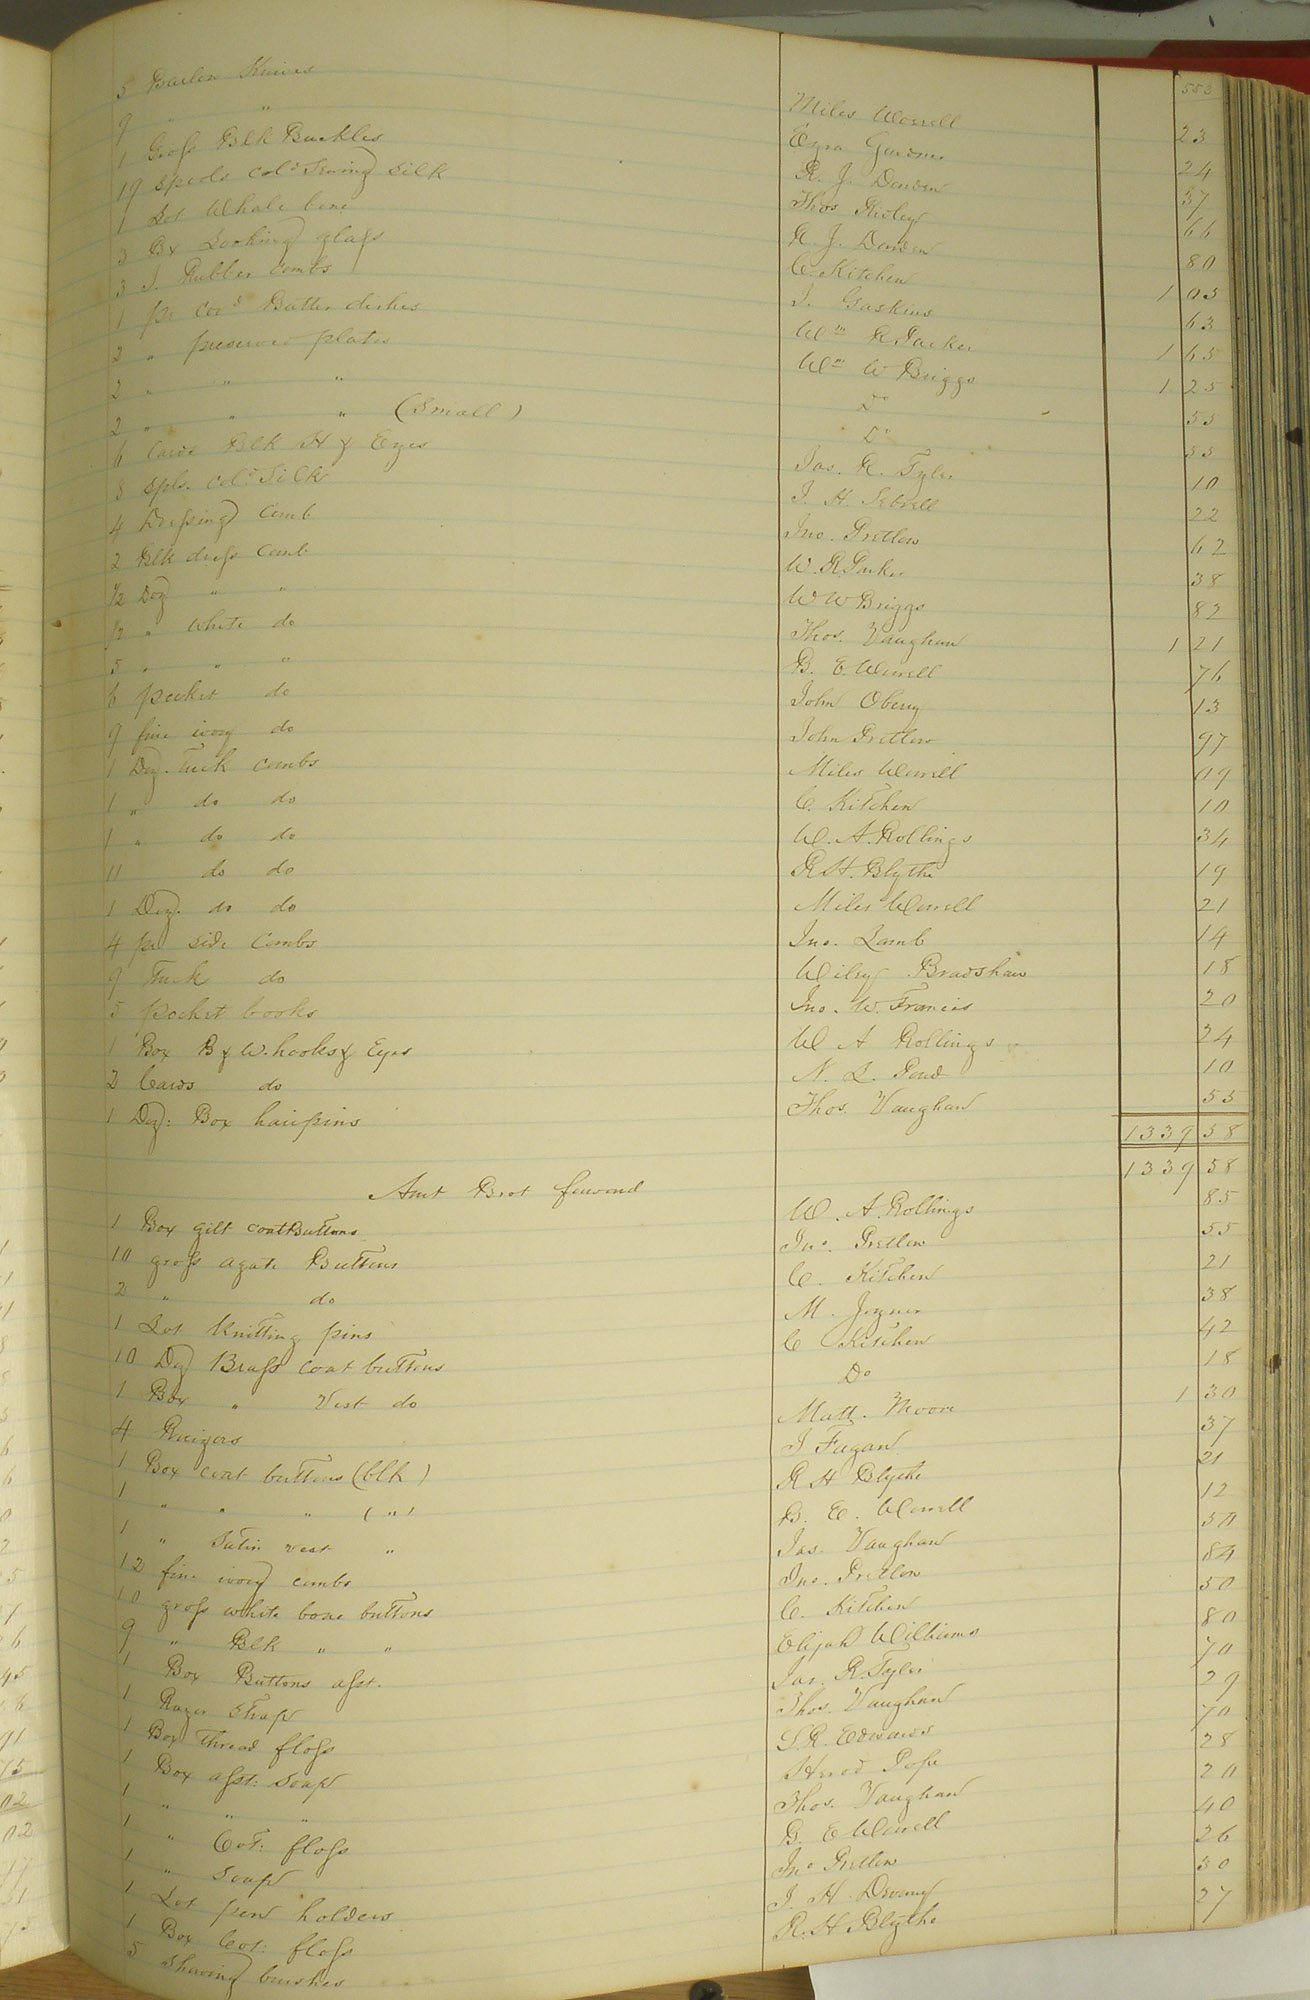 553
5 Barlow Knives Miles Worrell 23
9 " " Ezra Gardner 24
1 Groſs Blk Buckles R. J. Darden 37
19 spools col^d Sewing Silk Thos Risley 66
1 Lot Whale bone R. J. Darden 80
3 Bx Looking glaſs C Kitchen 1 03
3 I. Rubber combs J. Gaskins 63
1 pr Cov^d Butter dishes W^m R Parker 1 65
2 " preserve plates W^m W Briggs 1 25
2 " " " D^o 55
2 " " " (Small) D^o 55
6 Cards Blk H & Eyes Jas. R. Tyler 10
8 Spls. col^d Silk J. H. Sebrell 22
4 Dreſsing Comb Jno. Pretlow 62
2 Blk dreſs Comb W. R Parker 38
1/2 Doz " " W W Briggs 82
1/2 " White do Thos. Vaughan 1 21
5 " " " B. E. Worrell 76
6 pocket do John Oberry 13
9 fine ivory do John Pretlow 97
1 Doz. Tuck combs Miles Worrell 09
1 " do do C. Kitchen 10
1 " do do W. A. Rollings 34
11 do do R H. Blythe 19
1 Doz. do do Miles Worrell 21
4 pr side Combs Jno. Lamb 14
9 Tuck do Wiley Bradshaw 18
5 pocket books Jno. W. Francis 20
1 Box B & W. hooks & Eyes W A Rollings 24
2 Cards do N. L. Pond 10
1 Doz: Box hairpins Thos. Vaughan 55
1339 58
Amt Brot forward 1339 58
1 Box gilt coat Buttons W. A. Rollings 85
10 groſs agate Buttons Jno. Pretlow 55
2 " do C. Kitchen 21
1 Lot Knitting pins M. Joyner 38
10 Doz Braſs coat buttons C Kitchen 42
1 Box " Vest do Do 18
4 Raizors Matt. Moore 1 30
1 Box coat buttons (blk) J Fugan 37
1 " " " (") R H Blythe 21
1 " Satin vest " B. E. Worrell 12
12 fine ivory combs Jas. Vaughan 50
10 groſs white bone buttons Jno. Pretlow 84
9 " Blk " " C. Kitchen 50
1 Box Buttons aſst. Elijah Williams 80
1 Razor Strap Jas. R. Tyler 70
1 Box Thread floſs Thos. Vaughan 29
1 Box aſst: Soap S. R. Edwards 70
1 " " " Herod Pope 28
1 " Cot: floſs Thos. Vaughan 20
1 " Soap B. E Worrell 40
1 Lot pen holders Jno Pretlow 26
1 Box Cot: floſs J. H. Devany 30
5 Shaving brushes R. H Blythe 27